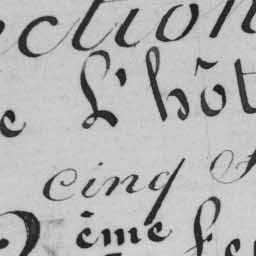 ection
e L'hôt
cinq
2ème